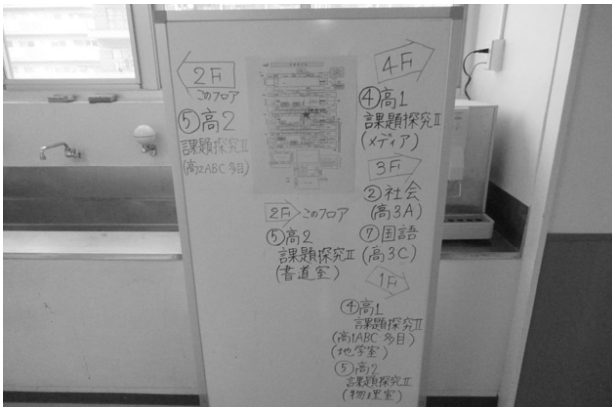 2F
このフロア
⑤高2
課題探究Ⅱ
(高2ABC多目)
4F
④高1
課題探究Ⅱ
(メディア)
3F
②社会
(高3A)
⑦国語
(高3C)
2F このフロア
⑤高2
課題探究Ⅱ
(書道室)
1F
④高1
課題探究Ⅱ
(高1ABC多目)
(地学室)
⑤高2
課題探究Ⅱ
(物理室)